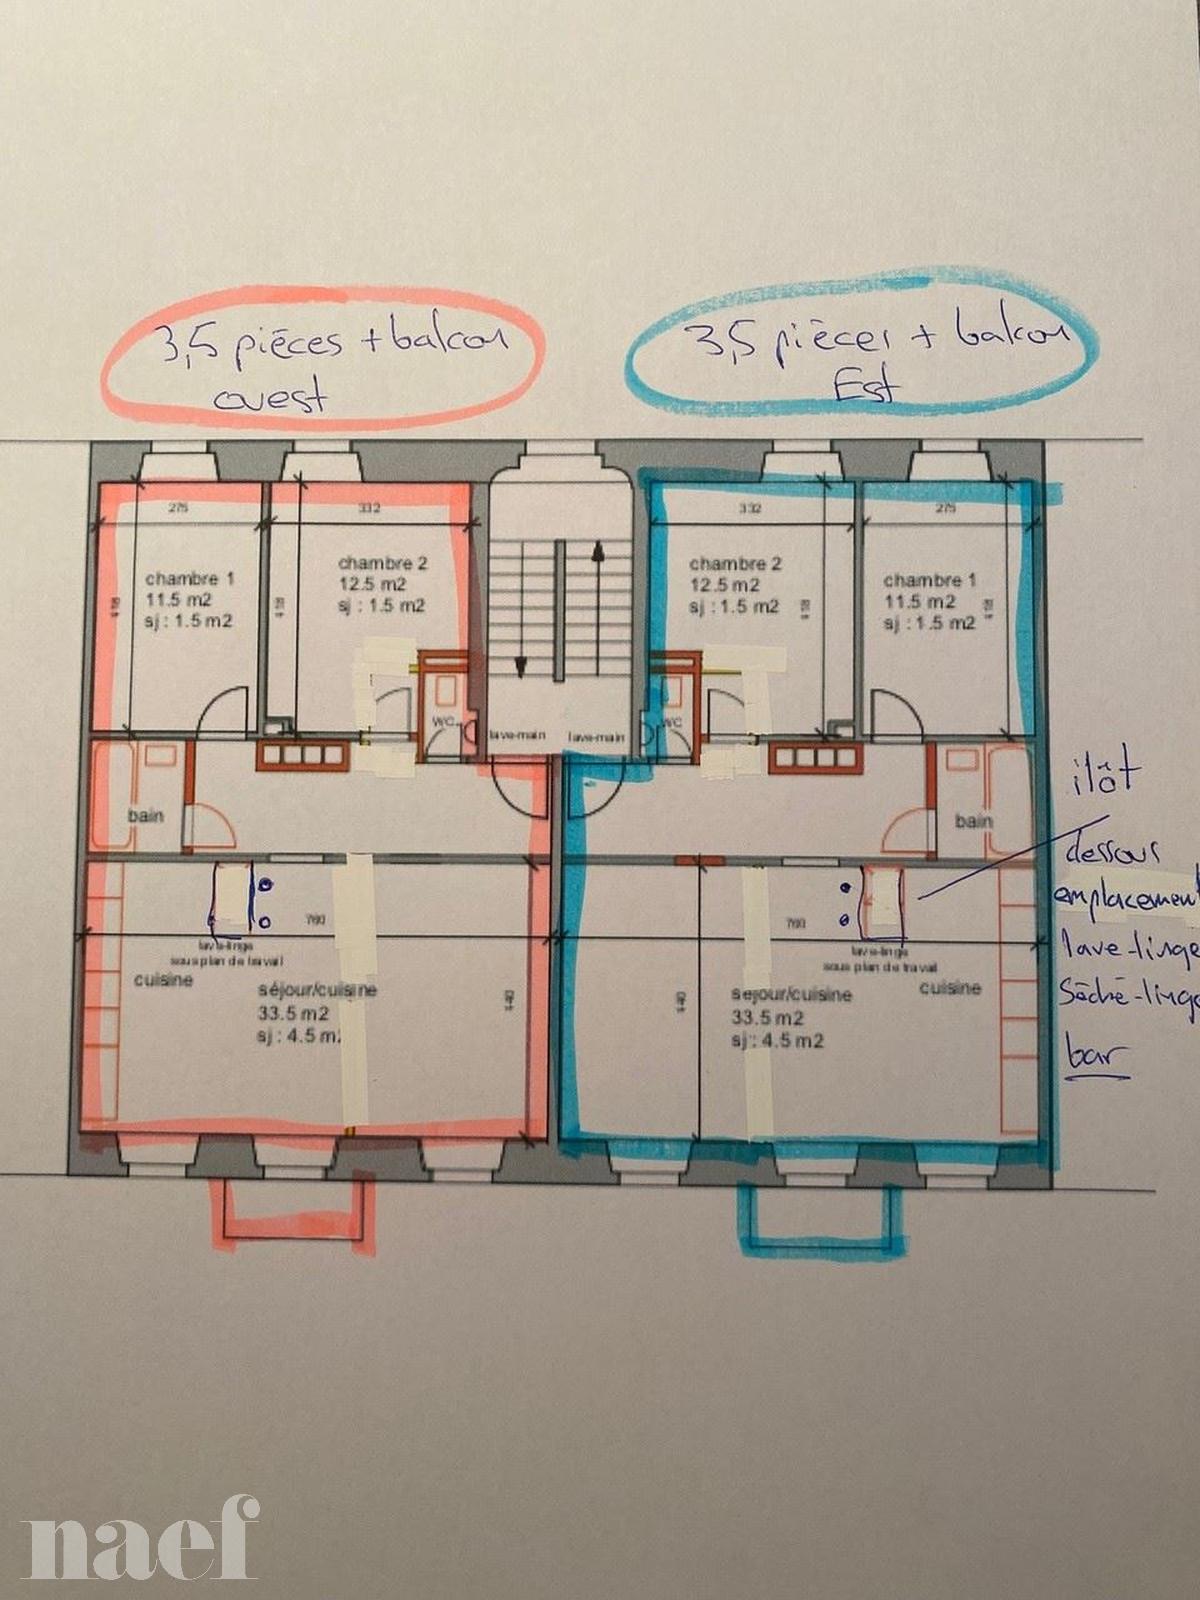 3,5 pièces + balcon
ouest
3,5 pièces + balcon
Est
275
332
332
275
chambre 1
11.5 m2
sj : 1.5 m2
chambre 2
12.5 m2
sj : 1.5 m2
chambre 2
12.5 m2
sj : 1.5 m2
chambre 1
11.5 m2
sj : 1.5 m2
WC
lave-main
lave-main
WC
bain
bain
îlôt
dessous
emplacement
lave-linge
Sèche-linge
bar
760
760
lave-linge
sous plan de travail
cuisine
séjour/cuisine
33.5 m2
sj : 4.5 m2
lave-linge
sous plan de travail
cuisine
sejour/cuisine
33.5 m2
sj : 4.5 m2
naef